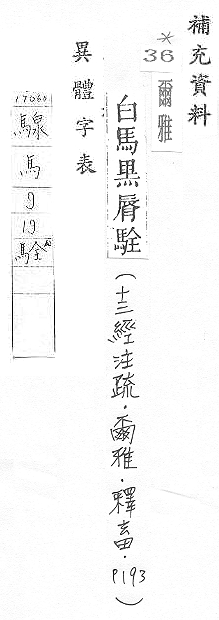 補充資料
*
36
爾雅
白馬黑脣駩
(十三經注疏.爾雅.釋畜.P193)
異體字表
騡
馬
9
19
駩